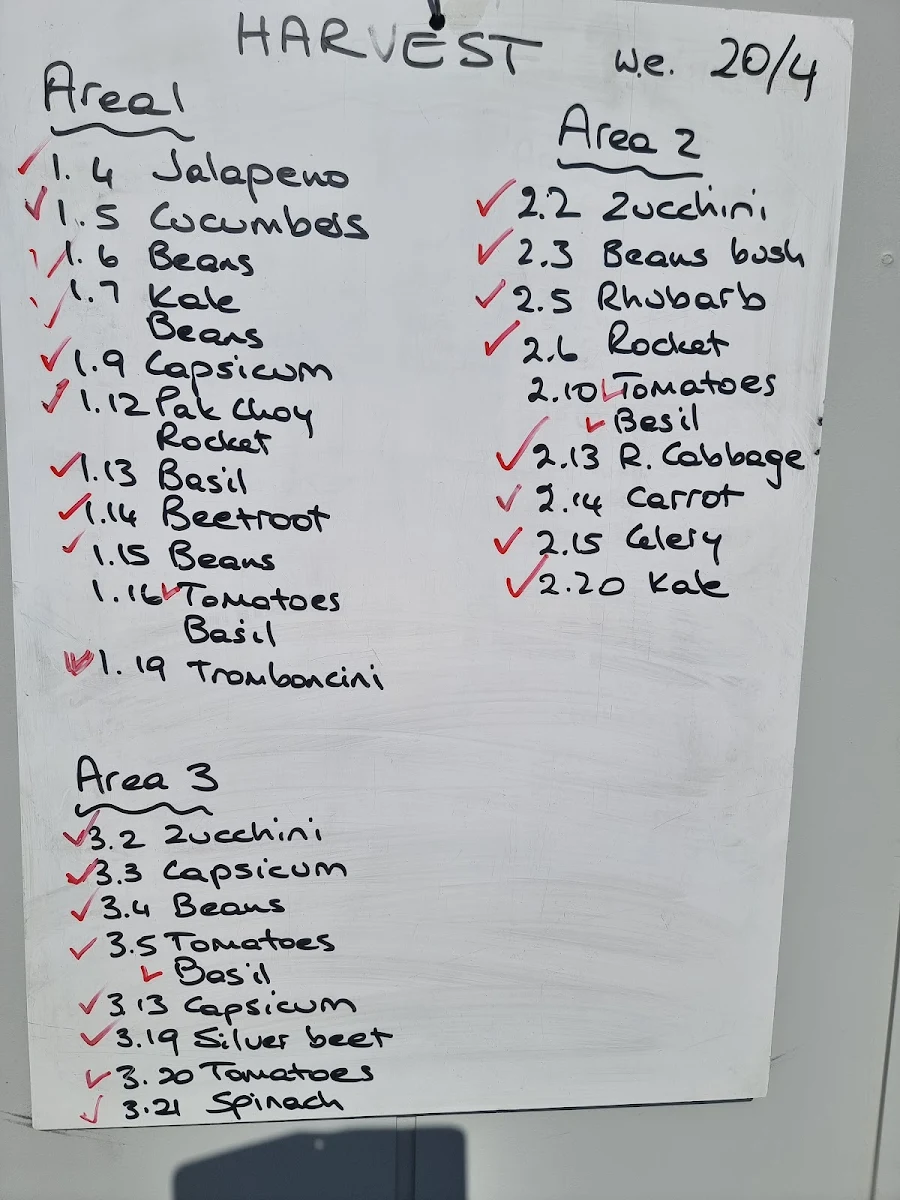 HARVEST w.e. 20/4
Area 1
1.4 Jalapeno
1.5 Cucumbers
1.6 Beans
1.7 Kale
Beans
1.9 Capsicum
1.12 Pak Choy
Rocket
1.13 Basil
1.14 Beetroot
1.15 Beans
1.16 Tomatoes
Basil
1.19 Tromboncini
Area 2
2.2 Zucchini
2.3 Beans bush
2.5 Rhubarb
2.6 Rocket
2.10 Tomatoes
Basil
2.13 R. Cabbage
2.14 Carrot
2.15 Celery
2.20 Kale
Area 3
3.2 Zucchini
3.3 Capsicum
3.4 Beans
3.5 Tomatoes
Basil
3.13 Capsicum
3.19 Silver beet
3.20 Tomatoes
3.21 Spinach